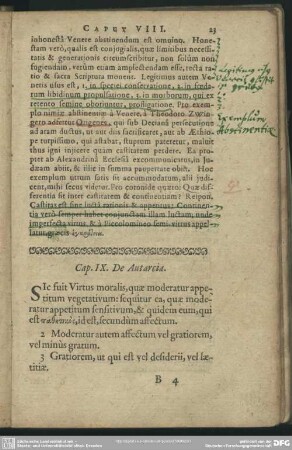 CAPUT VIII. 23
inhonestâ Venere abstinendum est omnino. Hone-
stam verò, qualis est conjugialis, quæ limitibus necessi-
tatis & generationis circumscribitur, non solùm non
fugiendam, verùm etiam amplectendam esse, tectâ ra-
tio & sacra Scriptura monent. Legitimus autem Ve-
neris usus est, 1. in speciei conservatione, 2. in fœda-
rum libidinum propulsatione, 3. in morborum, qui ex
retento semine oboriuntur, profligatione. Pro exem-
plo nimiæ abstinentiæ à Venere, à Theodoro Zwin-
gero adfertur Origenes, qui sub Decianâ persecutione
ad aram ductus, ut aut diis sacrificaret, aut ab Æthio-
pe turpissimo, qui astabat, stuprum pateretur, maluit
thus igni injicere quàm castitatem perdere. Ea pro-
pter ab Alexandrinâ Ecclesiâ excommunicatus, in Ju-
dæam abiit, & illic in summa paupertate obiit. Hoc
exemplum utrum satis sit accommodatum, alii judi-
cent, mihi secus videtur. Pro coronide quæro: Quæ dif-
ferentia sit inter castitatem & continentiam? Respon.
Castitas est sine luctâ rationis & appetitus: Continen-
tia verò semper habet conjunctam illam luctam, unde
imperfecta virtus, & à Piccolomineo semi-virtus appel-
latur,
Legitimus usus
Veneris
Exemplum
Abstinentiæ
Cap. IX. De Autarcia.
SIc fuit Virtus moralis, quæ moderatur appe-
titum vegetativum: sequitur ea, quæ mode-
ratur appetitum sensitivum, & quidem eum, qui
est id est, secundùm affectum.
2 Moderatur autem affectum vel gratiorem,
vel minùs gratum.
3 Gratiorem, ut qui est vel desiderii, vel læ-
titiæ.
B 4